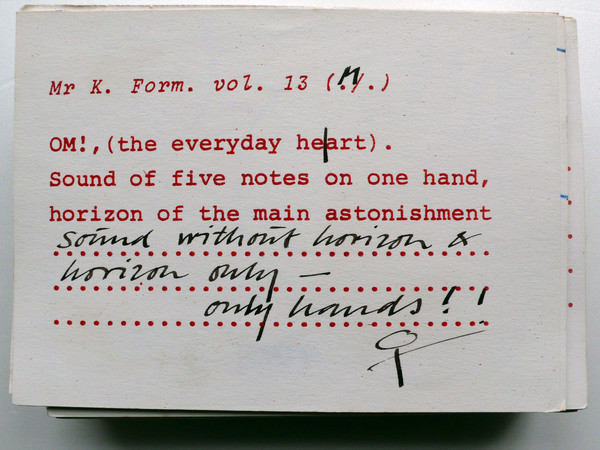 Mr K. Form. vol. 13 (.y.)
OM!,(the everyday heart).
Sound of five notes on one hand,
horizon of the main astonishment
sound without horizon &
horizon only —
only hands!!